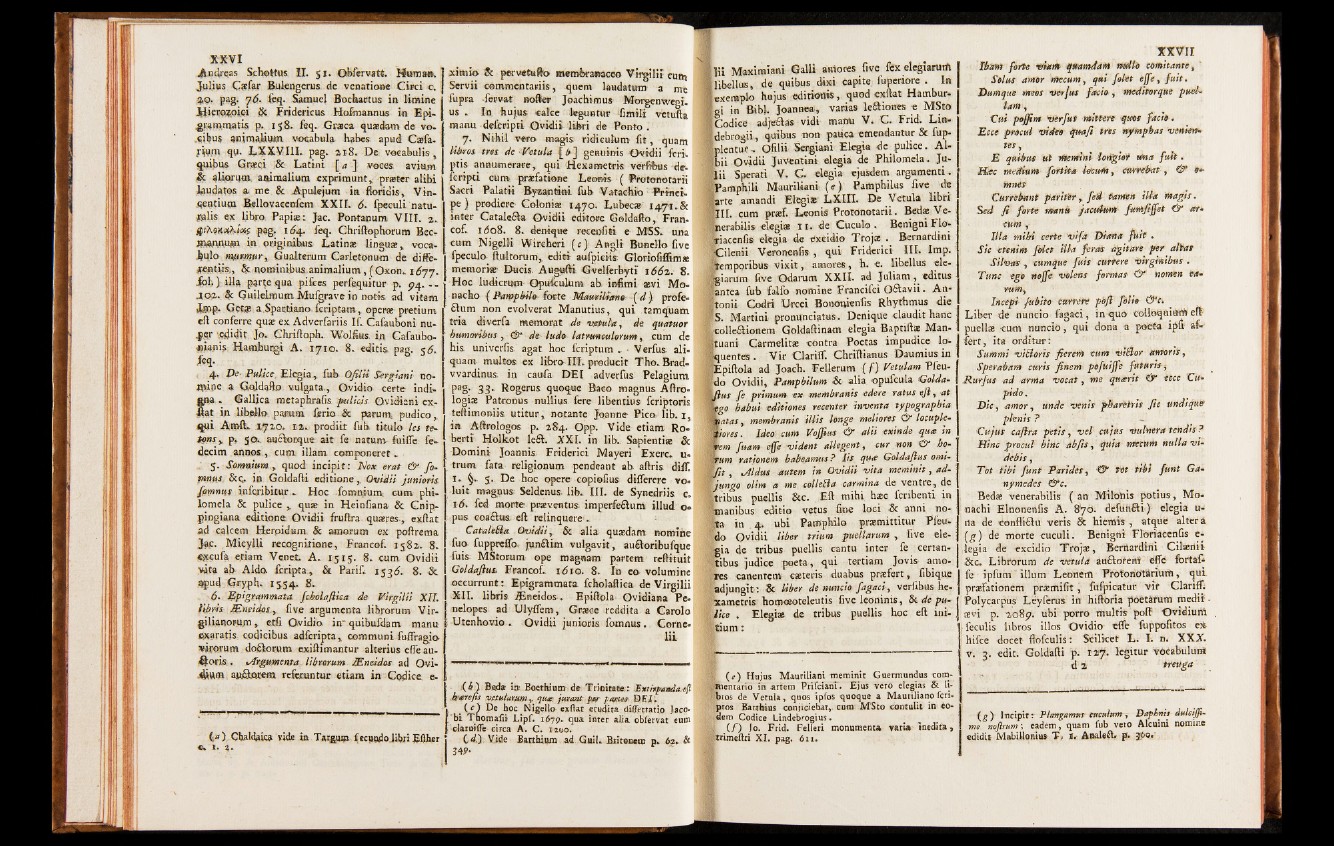 XXVI
Andreas Schottus II. 51. Observatt. Human.
Julius Cæsar Bulengerus de venatione Circi c.
20. pag. 76. seq. Samuel Bochartus in limine
Hierozoici & Fridericus Hofmannus in Epi-
grammatis p. 158. seq. Græca quædam de vo-
cibus animalium vocabula habes apud Cæsa-
rium qu. LXXVIII. pag. 218. De vocabulis,
quibus Græci & Latini [a] voces avium
& aliorum animalium exprimunt, præter alibi
laudatos a me & Apulejum in floridis, Vin-
centium Bellovacensem XXII. 6. speculi natu-
ralis ex libro Papiæ: Jac. Pontanum VIII. 2.
pag. 164. seq. Christophorum Bec-
mannum in originibus Latinæ linguæ, voca-
bulo murmur, Gualterum Carletonum de diffe-
rentiis, & nominibus animalium, (Oxon. 1677.
fol.) illa parte qua pisces persequitur p. 94. --
102. & Guilelmum Musgrave in notis ad vitam
Imp. Getæ a Spartiano scriptam, operæ pretium
est conferre quæ ex Adversariis Is. Casauboni nu-
per edidit Jo. Christoph. Wolfius in Casaubo-
nianis Hamburgi A. 1710. 8. editis pag. 56.
seq.
4. De Pulice Elegia, sub Ofilii Sergiani no-
mine a Goldasto vulgata, Ovidio certe indi-
gna. Gallica metaphrasis pulicis Ovidiani ex-
stat in libello parum serio & parum pudico,
qui Amst. 1720. 12. prodiit sub titulo les te-
tons, p. 50. auctorque ait se natum fuisse se-
decim annos, cum illam componeret.
5. Somnium, quod incipit: Nox erat & so-
mnus &c. in Goldasti editione, Ovidii junioris
somnus inscribitur. Hoc somnium cum phi-
lomela & pulice, quæ in Heinsiana & Cnip-
pingiana editione Ovidii frustra quæres, exstat
ad calcem Heroidum & amorum ex postrema
Jac. Micylli recognitione, Francof. 1582. 8.
excusa etiam Venet. A. 1515. 8. cum Ovidii
vita ab Aldo scripta, & Paris. 1536. 8. &
apud Gryph. 1554. 8.
6. Epigrammata scholastica de Virgilii XII.
libris Æneidos, sive argumenta librorum Vir-
gilianorum, etsi Ovidio in quibusdam manu
exaratis codicibus adscripta, communi suffragio
virorum doctorum existimantur alterius esse au-
ctoris. Argumenta librorum Æneidos ad Ovi-
dium auctorem referuntur etiam in Codice e-
(a) Chaldaica vide in Targum secundo libri Esther
c. 1. 2.
ximio & pervetusto membranaceo Virgilii cum
Servii commentariis, quem laudatum a me
supra servat noster Joachimus Morgenwegi-
us. In hujus calce leguntur simili vetusta
manu descripti Ovidii libri de Ponto.
7. Nihil vero magis ridiculum sit, quam
libros tres de Vetula [b] genuinis Ovidii scri-
ptis annumerare, qui Hexametris versibus de-
scripti cum præfatione Leonis (Protonotarii
Sacri Palatii Byzantini sub Vatachio Princi-
pe) prodiere Coloniæ 1470. Lubecæ 1471. &
inter Catalecta Ovidii editore Goldasto, Fran-
cof. 1608. 8. denique recensiti e MSS. una
cum Nigelli Wircheri (c) Angli Bunello sive
speculo stultorum, editi auspiciis Gloriosissimæ
memoriæ Ducis Augusti Gvelferbyti 1662. 8.
Hoc ludicrum Opusculum ab infimi ævi Mo-
nacho (Pamphilo forte Mauriliano (d) profe-
ctum non evolverat Manutius, qui tamquam
tria diversa memorat de vetula, de quatuor
humoribus, & de ludo latrunculorum, cum de
his universis agat hoc scriptum. Versus ali-
quam multos ex libro III. producit Tho. Brad-
wardinus in causa DEI adversus Pelagium
pag. 33. Rogerus quoque Baco magnus Astro-
logiæ Patronus nullius fere libentius scriptoris
testimoniis utitur, notante Joanne Pico lib. 1.
in Astrologos p. 284. Opp. Vide etiam Ro-
berti Holkot lect. XXI. in lib. Sapientiæ &
Domini Joannis Friderici Mayeri Exerc. u-
trum fata religionum pendeant ab astris diss.
1. §. 5. De hoc opere copiosius disserere vo-
luit magnus Seldenus lib. III. de Synedriis c.
16. sed morte præventus imperfectum illud o-
pus coactus est relinquere.
Catalecta Ovidii, & alia quædam nomine
suo suppresso junctim vulgavit, auctoribusque
suis MStorum ope magnam partem restituit
Goldastus Francof. 1610. 8. In eo volumine
occurrunt: Epigrammata scholastica de Virgilii
XII. libris Æneidos. Epistola Ovidiana Pe-
nelopes ad Ulyssem, Græce reddita a Carolo
Utenhovio. Ovidii junioris somnus. Corne-
lii
(b) Beda in Boethium de Trinitate: Extirpanda est
hæresis vetularum, quæ jurant per partes DEI.
(c) De hoc Nigello exstat erudita dissertatio Jaco-
bi Thomasii Lips. 1679. qua inter alia observat eum
claruisse circa A. C. 1200.
(d) Vide Barthium ad Guil. Britonem p. 62. &
349.
lii Maximiani Galli amores sive sex elegiarum
libellus, de quibus dixi capite superiore. In
exemplo hujus editionis, quod exstat Hambur-
gi in Bibl. Joannea, varias lectiones e MSto
Codice adjectas vidi manu V. C. Frid. Lin-
debrogii, quibus non pauca emendantur & sup-
plentur. Ofilii Sergiani Elegia de pulice. Al-
bii Ovidii Juventini elegia de Philomela. Ju-
lii Sperati V. C. elegia ejusdem argumenti.
Pamphili Mauriliani (e) Pamphilus sive de
arte amandi Elegiæ LXIII. De Vetula libri
III. cum præf. Leonis Protonotarii. Bedæ Ve-
nerabilis elegiæ II. de Cuculo. Benigni Flo-
riacensis elegia de excidio Trojæ. Bernardini
Cilenii Veronensis, qui Friderici III. Imp.
temporibus vixit, amores, h. e. libellus ele-
giarum sive Odarum XXII. ad Juliam, editus
antea sub falso nomine Francisci Octavii. An-
tonii Codri Urcei Bononiensis Rhythmus die
S. Martini pronunciatus. Denique claudit hanc
collectionem Goldastinam elegia Baptistæ Man-
tuani Carmelitæ contra Poetas impudice lo-
quentes. Vir Clariss. Christianus Daumius in
Epistola ad Joach. Fellerum (f) Vetulam Pseu-
do Ovidii, Pamphilum & alia opuscula Golda-
stus se primum ex membranis edere ratus est, at
ego habui editiones recenter inventa typographia
natas, membranis illis longe meliores & locuple-
tiores. Ideo cum Vossius & alii exinde quæ in
rem suam esse vident allegent, cur non & ho-
rum rationem habeamus? Iis quæ Goldastus omi-
sit, Aldus autem in Ovidii vita meminit, ad-
jungo olim a me collecta carmina de ventre, de
tribus puellis &c. Est mihi hæc scribenti in
manibus editio vetus sine loci & anni no-
ta in 4. ubi Pamphilo præmittitur Pseu-
do Ovidii liber trium puellarum, sive ele-
gia de tribus puellis cantu inter se certan-
tibus judice poeta, qui tertiam Jovis amo-
res canentem cæteris duabus præfert, sibique
adjungit: & liber de nuncio sagaci, versibus he-
xametris homœoteleutis sive leoninis, & de pu-
lice. Elegiæ de tribus puellis hoc est ini-
tium:
(e) Hujus Mauriliani meminit Guermundus com-
mentario in artem Prisciani. Ejus vero elegias & li-
bros de Vetula, quos ipsos quoque a Mauriliano scri-
ptos Barthius conjiciebat, cum MSto contulit in eo-
dem Codice Lindebrogius.
(f) Jo. Frid. Felleri monumenta varia inedita,
trimestri XI. pag. 611.
XXVII
Ibam forte viam quamdam nullo comitante,
Solus amor mecum, qui solet esse, fuit.
Dumque meos versus facio, meditorque puel-
lam,
Cui possim versus mittere quos facio.
Ecce procul video quasi tres nymphas venien-
tes,
E quibus ut memini longior una fuit.
Hæc medium sortita locum, currebat, & o-
mnes
Currebant pariter, sed tamen illa magis.
Sed si forte manu jaculum sumsisset & ar-
cum,
Illa mihi certe visa Diana fuit.
Sic etenim solet illa feras agitare per altas
Silvas, cumque suis currere virginibus.
Tunc ego nosse volens formas & nomen ea-
rum,
Incepi subito currere post solio &c.
Liber de nuncio sagaci, in quo colloquium est
puellæ cum nuncio, qui dona a poeta ipsi af-
fert, ita orditur:
Summi victoris fierem cum victor amoris,
Sperabam curis finem posuisse futuris,
Rursus ad arma vocat, me quærit & ecce Cu-
pido.
Dic, amor, unde venis pharetris sic undique
plenis?
Cujus castra petis, vel cujus vulnera tendis?
Hinc procul hinc absis, quia mecum nulla vi-
debis,
Tot tibi sunt Parides, & tot tibi sunt Ga-
nymedes &c.
Bedæ venerabilis (an Milonis potius, Mo-
nachi Elnonensis A. 870. defuncti) elegia u-
na de conflictu veris & hiemis, atque altera
(g) de morte cuculi. Benigni Floriacensis e-
legia de excidio Trojæ, Bernardini Cilænii
&c. Librorum de vetula auctorem esse fortas-
se ipsum illum Leonem Protonotarium, qui
præfationem præmisit, suspicatur vir Clariss.
Polycarpus Leyserus in historia poetarum medii
ævi p. 2089. ubi porro multis post Ovidium
seculis libros illos Ovidio esse suppositos ex
hisce docet flosculis: Scilicet L. I. n. XXX.
v. 3. edit. Goldasti p. 127. legitur vocabulum
d 2 treuga
(g) Incipit: Plangamus cuculum, Daphnis dulcissi-
me nostrum: eadem, quam sub vero Alcuini nomine
edidit Mabillonius T. 1. Analect. p. 369.